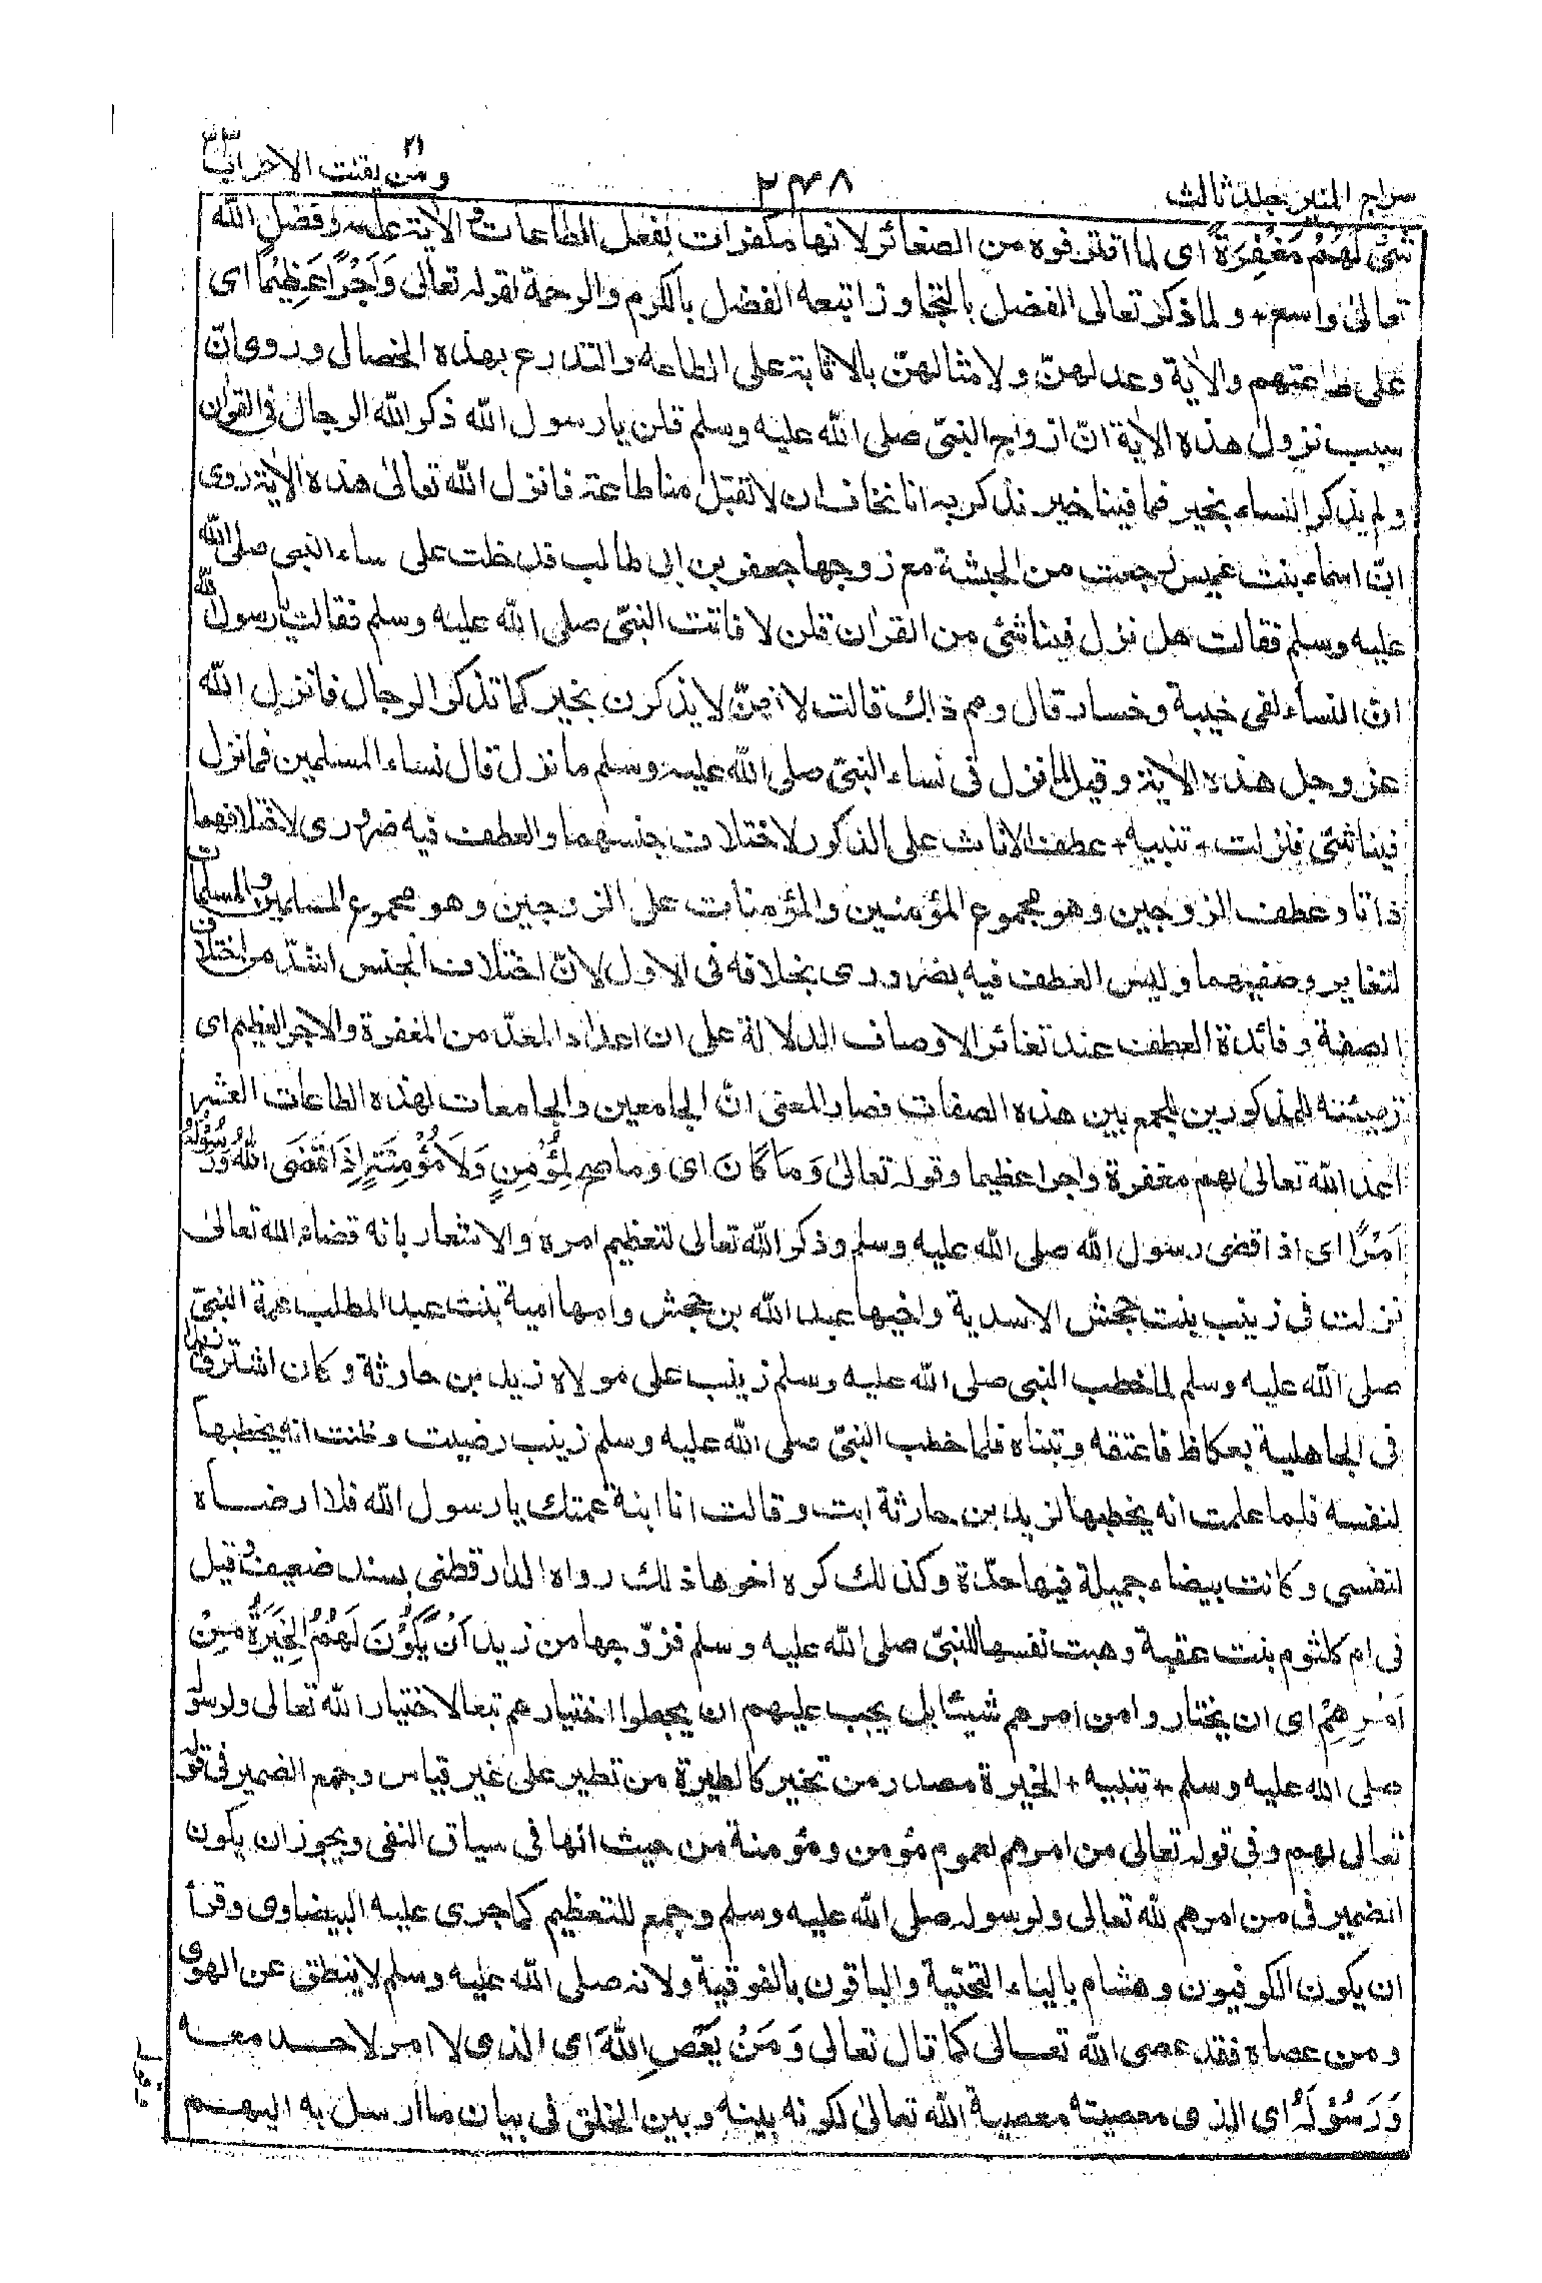 سراج المنير جلد ثالث
٢٤٨
ومن يقنت ٢٢ الاحزاب ٣٣
شئ لَهُمْ مَغْفِرَةً اى لما اقترفوه من الصغائر لانها مكفرات بفعل الطاعات و الاية عليه وفضل الله
تعالىٰ واسع + ولما ذكر تعالى الفضل بالتجاوز اتبعه الفضل بالكرم والرحمة لقوله تعالىٰ وَاَجْرًا عَظِيْمًا اى
على طاعتهم والاية وعد لهنّ ولامثالهنّ بالاثابة على الطاعة والتدرع بهذه الخصال وروى انّ
سبب نزول هذه الاية انّ ازواج النبىّ صلى الله عليه وسلم قلن يا رسول الله ذكر الله الرجال فى القراٰن
ولم يذكر النساء بخير فما فينا خير نذكر به انا نخاف ان لا تقبل منا طاعة فانزل الله تعالىٰ هذه الاية روى
انّ اسماء بنت عميس رجعت من الحبشة مع زوجها جعفر بن ابى طالب فدخلت على ساء النبى صلى الله
عليه وسلم فقالت هل نزل فينا شئ من القراٰن قلن لا فاتت النبىّ صلى الله عليه وسلم فقالت يا رسول الله
انّ النساء لفى خيبة وخسار قال ومم ذاك قالت لانهنّ لا يذكرن بخير كما تذكر الرجال فانزل الله
عز وجل هذه الاية وقيل لما نزل فى نساء النبىّ صلى الله عليه وسلم ما نزل قال نساء المسلمين فما نزل
فينا شئ فنزلت + تنبيه + عطف الاناث على الذكور لاختلاف جنسهما والعطف فيه ضرورى لاختلافهما
ذاتا وعطف الزوجين وهو مجموع المؤمنين والمؤمنات على الزوجين وهو مجموع المسلمين والمسلمات
لتغاير وصفيهما وليس العطف فيه بضرورى بخلافه فى الاول لانّ اختلاف الجنس اشدّ من اختلاف
الصفة وفائدة العطف عند تغائر الاوصاف الدلالة على ان اعداد المعدّ من المغفرة والاجر العظيم اى
تهيئته للمذكورين للجمع بين هذه الصفات فصار المعنى انّ الجامعين والجامعات لهذه الطاعات العشر
اعد الله تعالىٰ لهم مغفرة واجرا عظيما وقوله تعالىٰ وَمَا كَانَ اى وما صح لِمُؤْمِنٍ وَلَا مُؤْمِنَةٍ اِذَا قَضَى اللهُ وَرَسُوْلُهُ
اَمْرًا اى اذا قضى رسول الله صلى الله عليه وسلم وذكر الله تعالى لتعظيم امره والاشعار بانه قضاء الله تعالىٰ
نزلت فى زينب بنت جحش الاسدية واخيها عبد الله بن جحش وامها اميمة بنت عبد المطلب عمة النبىّ
صلى الله عليه وسلم لما خطب النبى صلى الله عليه وسلم زينب على مولاه زيد بن حارثة وكان اشترى زيدا
فى الجاهلية بعكاظ فاعتقه وتبناه فلما خطب النبىّ صلى الله عليه وسلم زينب رضيت وظنت انه يخطبها
لنفسه فلما علمت انه يخطبها لزيد بن حارثة ابت وقالت انا ابنة عمتك يا رسول الله فلا ارضاه
لنفسى وكانت بيضاء جميلة فيها حدّة وكذلك كره اخوها ذلك رواه الدارقطنى بسند ضعيف وقيل
فى ام كلثوم بنت عقبة وهبت نفسها للنبىّ صلى الله عليه وسلم فزوّجها من زيد اَنْ يَّكُوْنَ لَهُمُ الْخِيَرَةُ مِنْ
اَمْرِهِمْ اى ان يختاروا من امرهم شيئا بل يجب عليهم ان يجعلوا اختيارهم تبعا لاختيار الله تعالى ولرسوله
صلى الله عليه وسلم + تنبيه + الخيرة مصدر من تخير كالطيرة من تطير على غير قياس وجمع الضمير فى قوله
تعالى لهم وفى قوله تعالى من امرهم لعموم مؤمن ومؤمنة من حيث انها فى سياق النفى ويجوز ان يكون
الضمير فى من امرهم لله تعالى ولرسوله صلى الله عليه وسلم وجمع للتعظيم كما جرى عليه البيضاوى وقرأ
ان يكون الكوفيون وهشام بالياء التحتية والباقون بالفوقية ولانه صلى الله عليه وسلم لا ينطق عن الهوى
ومن عصاه فقد عصى الله تعالى كما قال تعالى وَمَنْ يَعْصِ اللهَ اى الذى لا امر لاحد معه
وَرَسُوْلَهُ اى الذى معصيته معصية الله تعالىٰ لكونه بينه وبين الخلق فى بيان ما ارسل به اليهم